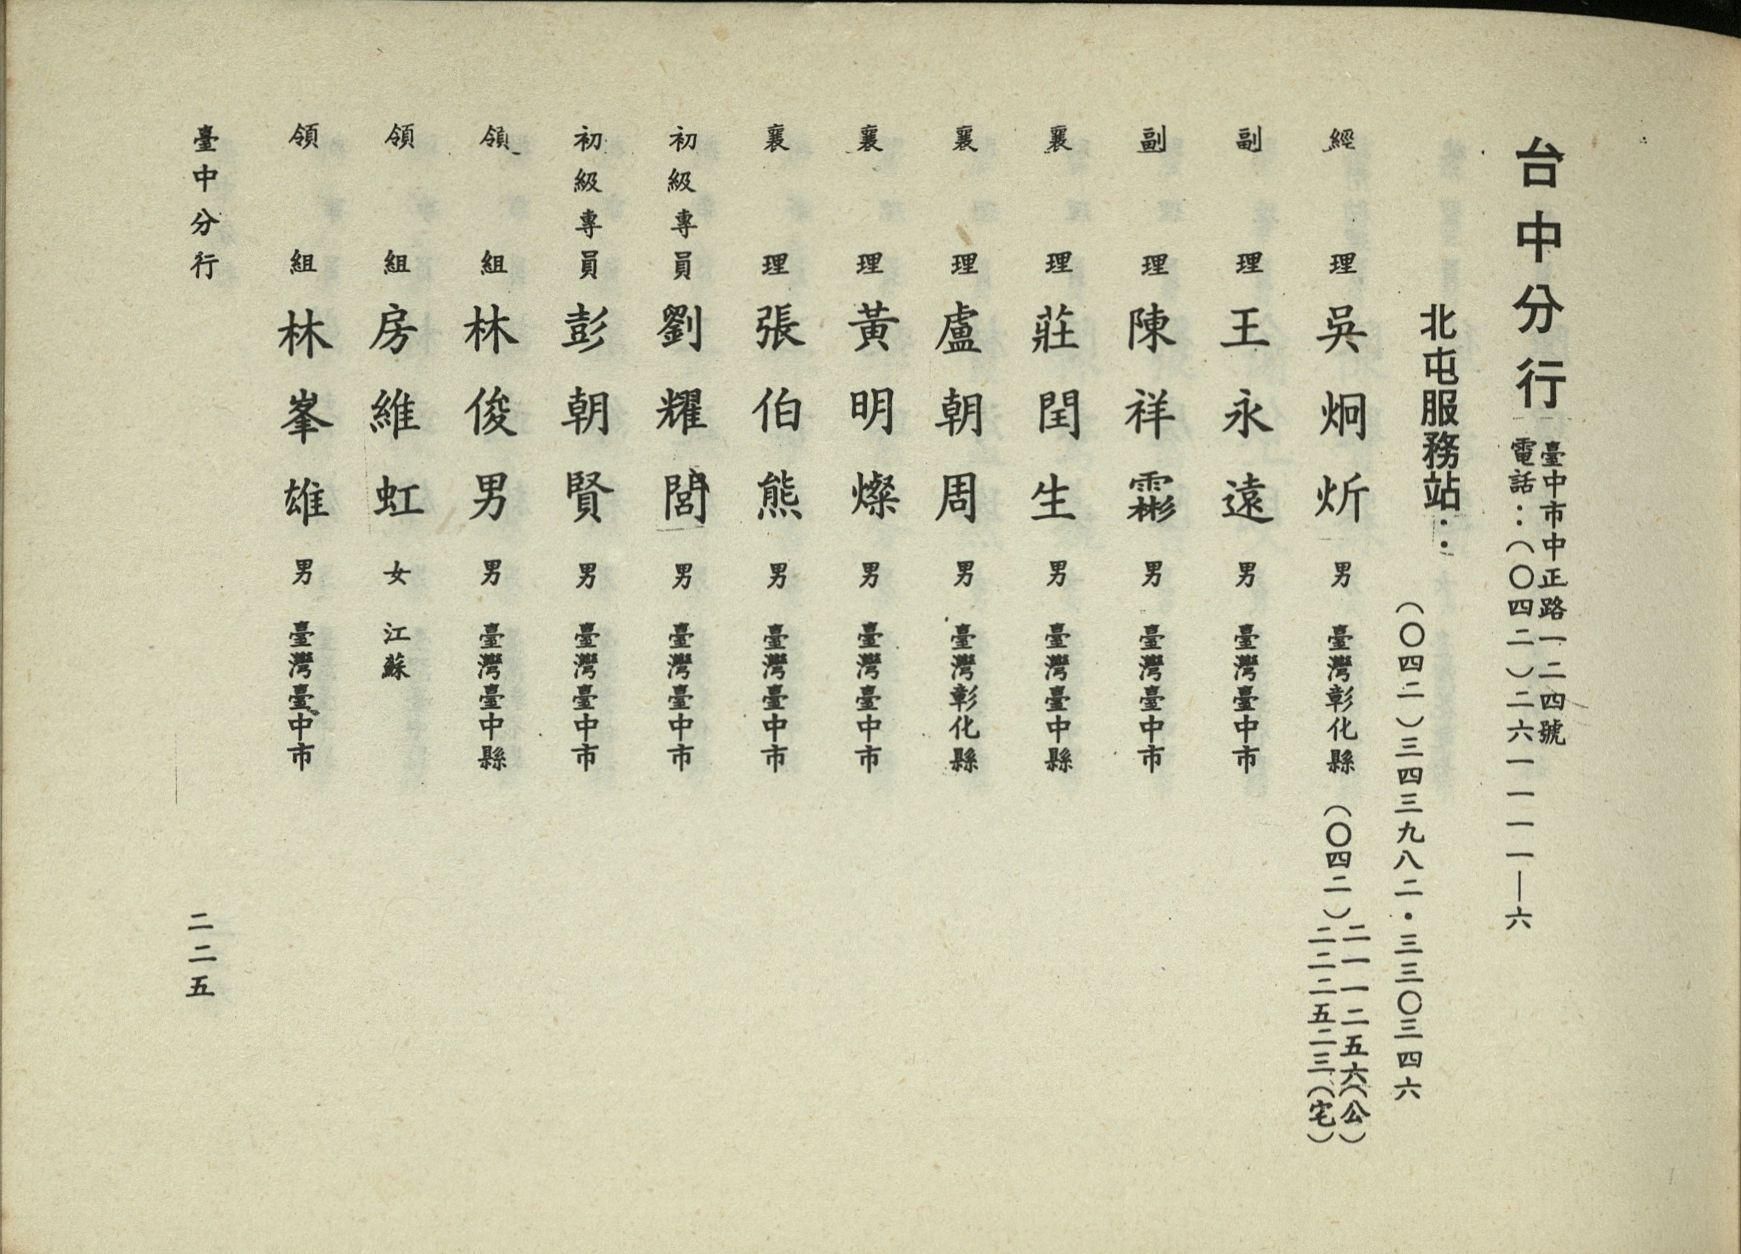 台中分行
臺中市中正路一二四號
電話：（〇四二）二六一一一一—六
北屯服務站：
（〇四二）三四三九八二・三三〇三四六
經理 吳炯炘 男 臺灣彰化縣 （〇四二）
二一一二五六（公）
二二二五二三（宅）
副理 王永遠 男 臺灣臺中市
副理 陳祥霦 男 臺灣臺中市
襄理 莊閏生 男 臺灣臺中縣
襄理 盧朝周 男 臺灣彰化縣
襄理 黃明燦 男 臺灣臺中市
襄理 張伯熊 男 臺灣臺中市
初級專員 劉耀 男 臺灣臺中市
初級專員 彭朝賢 男 臺灣臺中市
領組 林俊男 男 臺灣臺中縣
領組 房維虹 女 江蘇
領組 林峯雄 男 臺灣臺中市
臺中分行
二二五